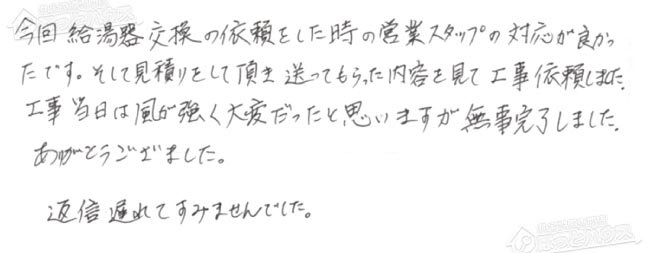 今回 給湯器交換の依頼をした時の営業スタッフの対応が良かっ
たです。そして見積りをして頂き送ってもらった内容を見て工事依頼しました。
工事当日は風が強く大変だったと思いますが無事完了しました。
ありがとうございました。
返信遅れてすみませんでした。